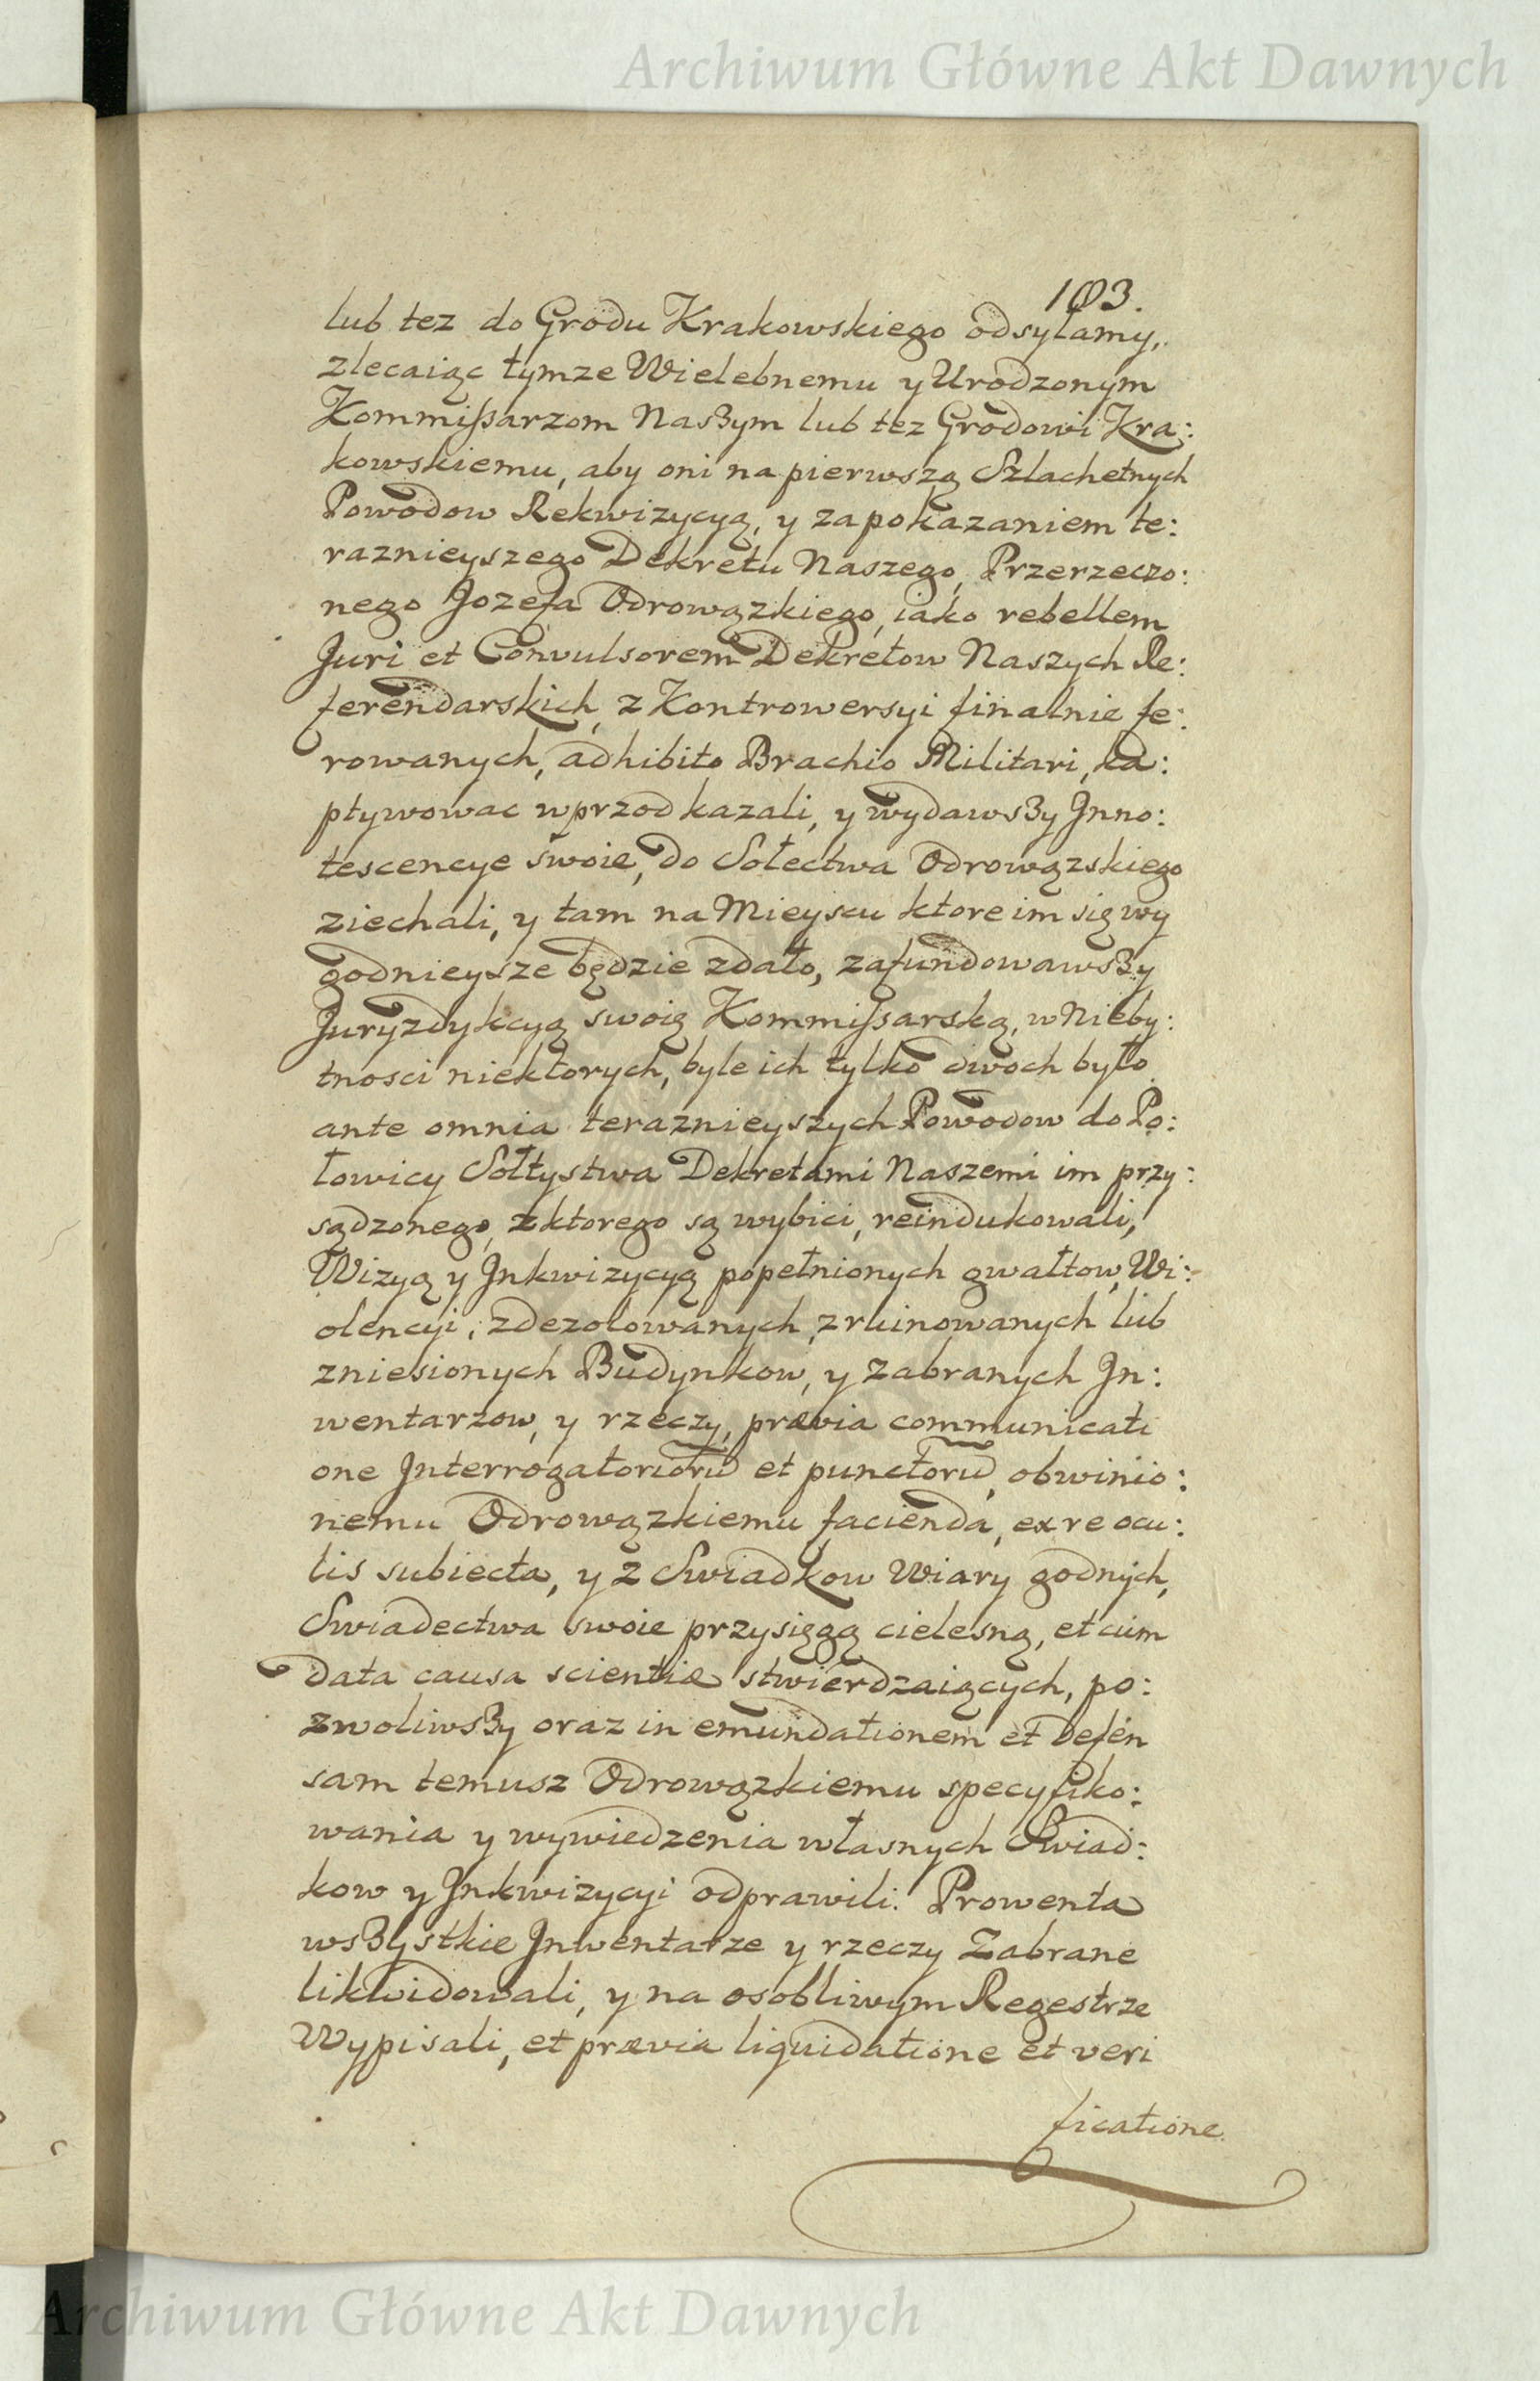 Archiwum Główne Akt Dawnych
103.
lub tez do Grodu Krakowskiego odsyłamy,
zlecaiąc tymze Wielebnemu y Urodzonym
Kommissarzom Naszym lub tez Grodowi Kra:
kowskiemu, aby oni na pierwszą Szlachetnych
Powodow Rekwizycyą, y za pokazaniem te:
raznieyszego Dekretu Naszego, Przerzeczo:
nego Jozefa Odrowązkiego, iako rebellem
Juri et Convulsorem Dekretow Naszych Re:
ferendarskich, z Kontrowersyi finalnie fe:
rowanych, adhibito Brachio Militari, ka:
ptywowac wprzod kazali, y wydawszy Inno:
tescencye swoie, do Sołectwa Odrowązskiego
ziechali, y tam na Mieyscu ktore im się wy
godnieysze będzie zdało, zafundowawszy
Juryzdykcyą swoią Kommissarską, w Nieby:
tnosci niektorych, byle ich tylko dwoch było
ante omnia teraznieyszych Powodow do Po:
łowicy Sołtystwa Dekretami Naszemi im przy:
sądzonego, z ktorego są wybici, reindukowali,
Wizyą y Inkwizycyą popełnionych gwałtow, Wi:
olencyi, zdezolowanych, zruinowanych lub
zniesionych Budynkow, y zabranych In:
wentarzow, y rzeczy, prævia communicati
one Interrogatoriorũ et punctorũ, obwinio:
nemu Odrowązkiemu facienda, ex re ocu:
lis subiecta, y z Swiadkow Wiary godnych,
Swiadectwa swoie przysięgą cielesną, et cum
data causa scientiæ stwierdzaiących, po:
zwoliwszy oraz in emundationem et defen
sam temusz Odrowązkiemu specyfiko:
wania y wywiedzenia własnych Swiad:
kow y Inkwizycyi odprawili. Prowenta
wszystkie Inwentarze y rzeczy Zabrane
likwidowali, y na osobliwym Regestrze
Wypisali, et prævia liquidatione et veri
ficatione
Archiwum Główne Akt Dawnych